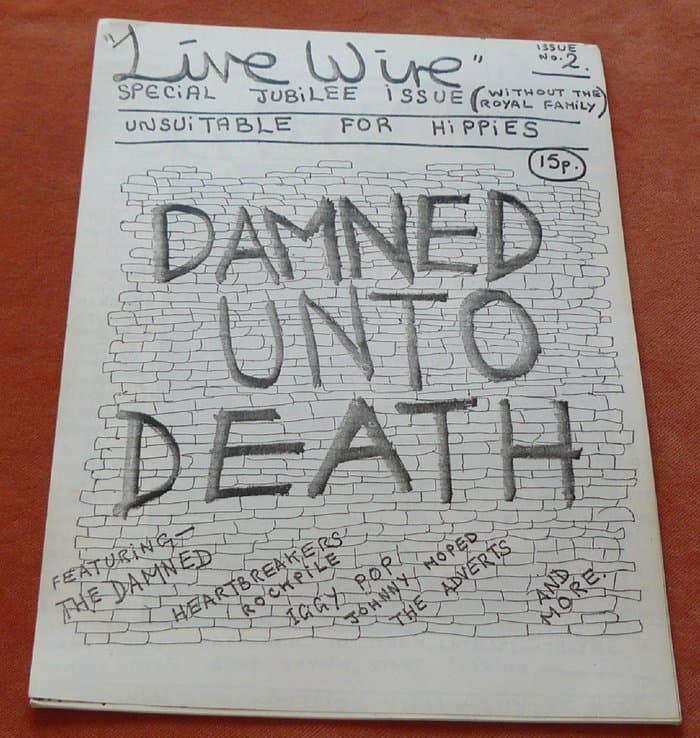 "Live Wire"
ISSUE
No. 2.
SPECIAL JUBILEE ISSUE (WITHOUT THE
ROYAL FAMILY)
UNSUITABLE FOR HIPPIES
15p.
DAMNED
UNTO
DEATH
FEATURING—
THE DAMNED
HEARTBREAKERS
ROCKPILE
IGGY POP
JOHNNY MOPED
THE ADVERTS
AND
MORE.